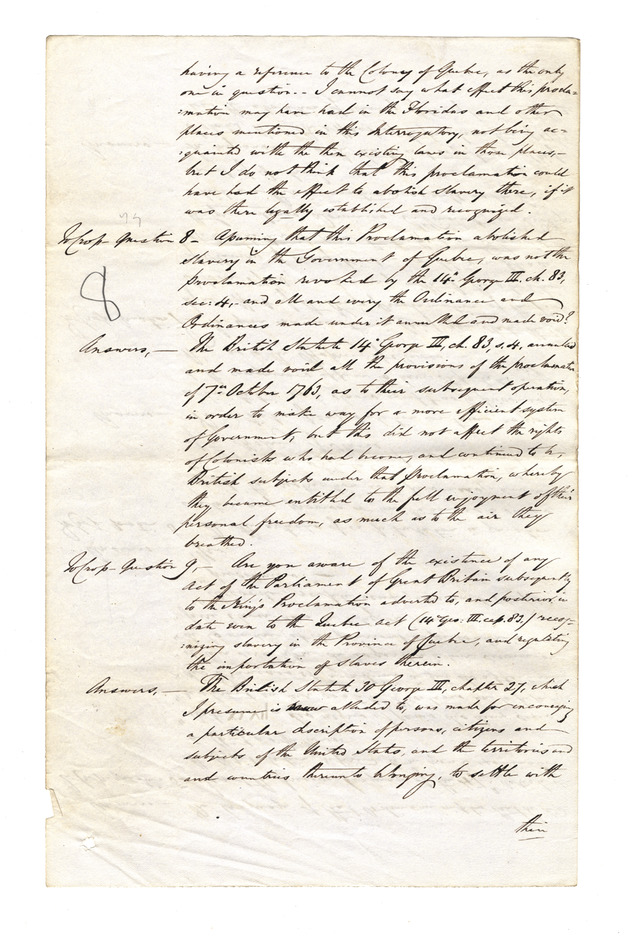 having a reference to the Colony of Quebec, as the only
one in question.- I cannot say what effect this procla=
=mation may have had in the Floridas and other
places mentioned in this Interrogatory, not being ac=
=quainted with the then existing laws in those places,-
but I do not think that this proclamation could
have had the effect to abolish slavery there, if it
was there legally established and recognized.
To Crop Question 8- Assuming that this Proclamation abolished
slavery in the Government of Quebec, was not the
8
proclamation revoked by the 14th George III, ch. 83,
sec: 4,- and all and every the Ordinance and
Ordinances made under it annulled and made void?
Answers,- The British Statute 14th George III, ch. 83, s. 4, annulled
and made void all the provisions of the proclamation
of 7th October 1763, as to their subsequent operation,
in order to make way for a more efficient system
of Government, but this did not affect the rights
of Colonists who had become, and continued to be,
British subjects under that proclamation, whereby
they became entitled to the full enjoyment of their
personal freedom, as much as to the air they
breathed.
To Crop- Question 9,- Are you aware of the existence of any
act of the Parliament of Great Britain subsequently
to the King's Proclamation adverted to, and posterior in
date even to the Quebec act (14th Geo: III. cap. 83,) recog=
=nizing slavery in the Province of Quebec, and regulating
the importation of slaves therein.
Answers,- The British Statute 30 George III, chapter 27, which
I presume is alluded to, was made for encouraging
a particular discription of persons, citizens and
subjects of the United States, and the territories and
and countries thereunto belonging, to settle with
their